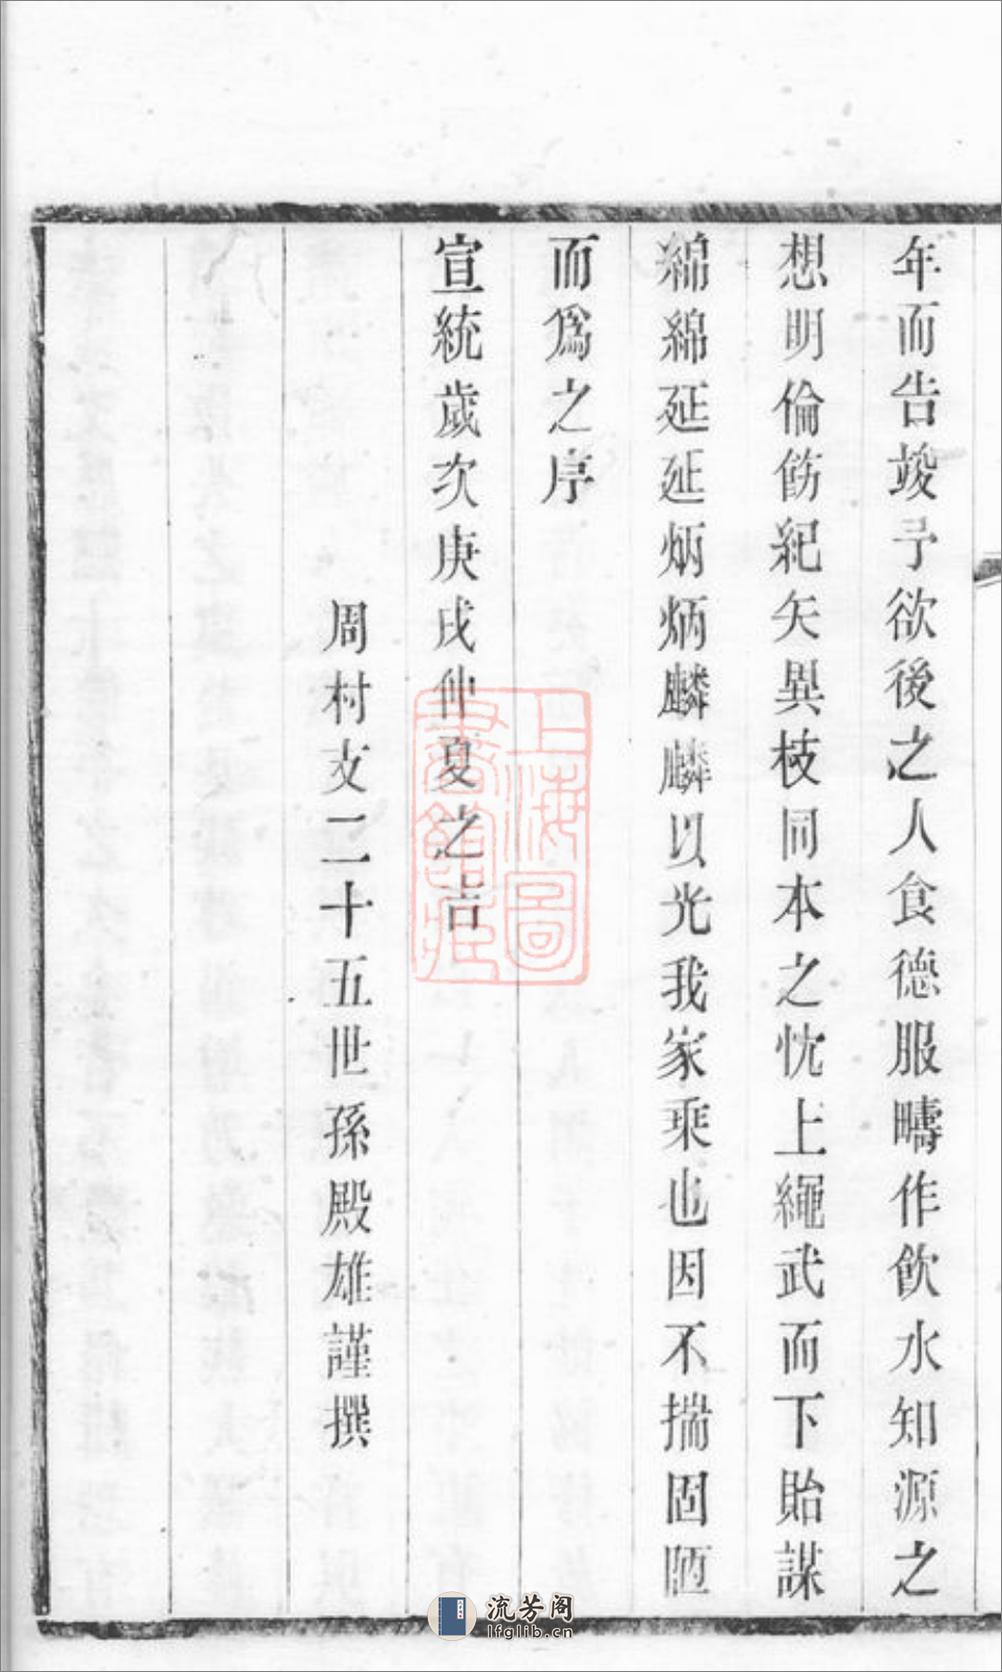 年而告竣予欲後之人食德服疇作飲水知源之
想明倫飭紀矢異枝同本之忱上繩武而下貽謀
綿綿延延炳炳麟麟以光我家乘也因不揣固陋
而爲之序
宣統歲次庚戌仲夏之吉
周村支二十五世孫殿雄謹撰
上海圖
書館藏
流芳阁
lfglib.cn